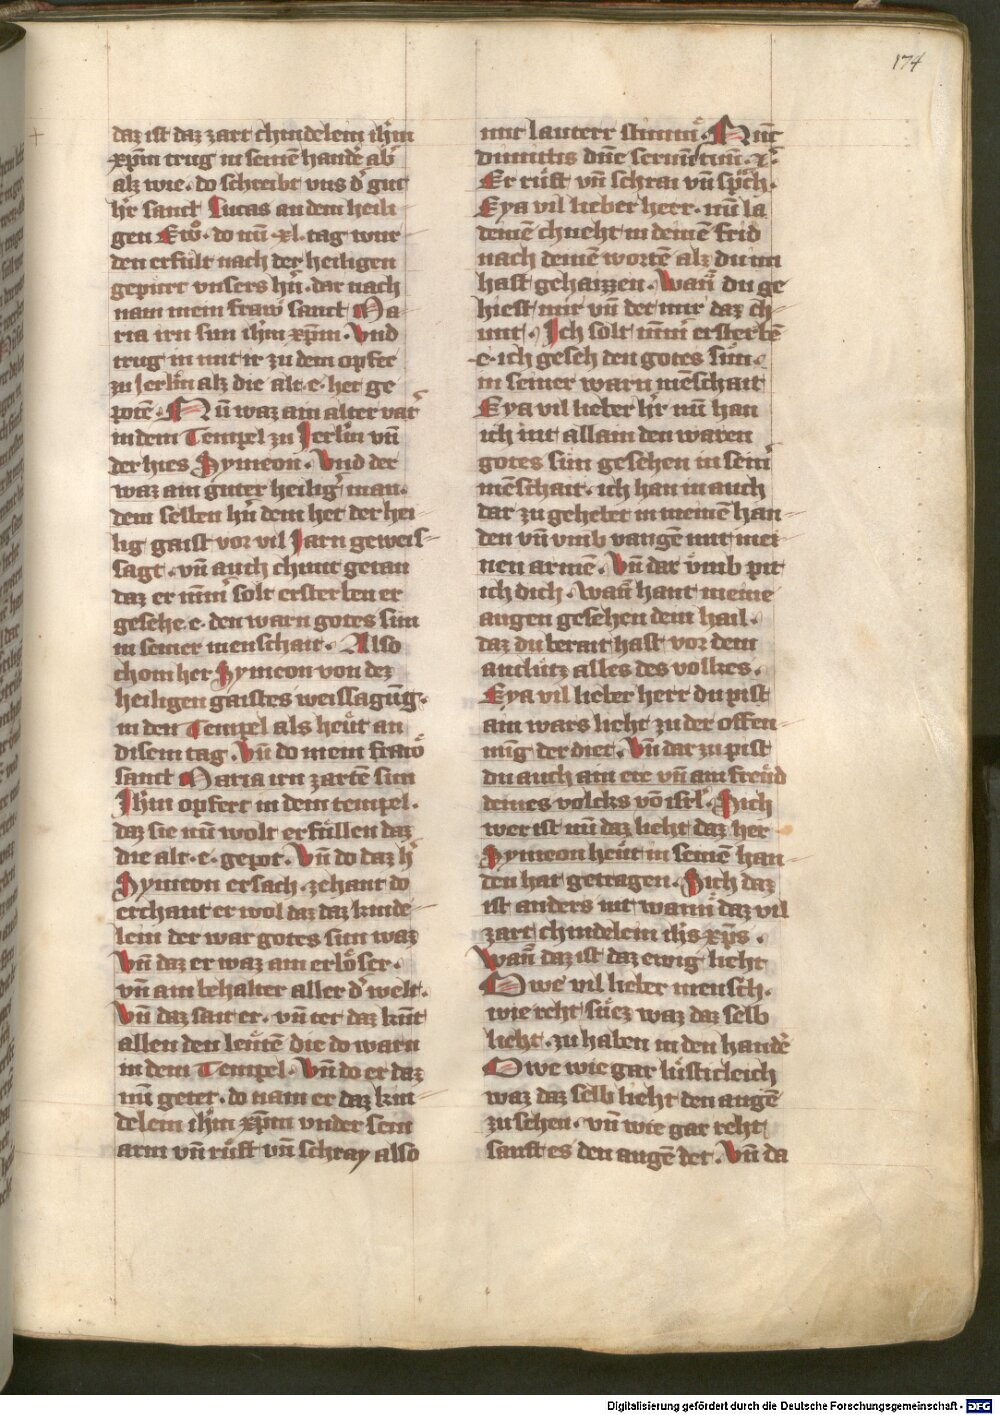 174
daz ist daz zart chindelein ih̄m
xp̄m trug in seinē handē ab̾
alz wie. do schreibt vns d̾ gut
h̾r sanct Lucas an dem heili
gen Ew̄. do nu̅ .xl. tag wur
den erfult nach der heiligen
gepurt vnsers h̾n. dar nach
nam mein fraw sanct Ma
ria irn sun ih̄m xp̄m. Vnd
trug in mit ir zu dem opfer
zu Jerl̄m alz die alt .e. het ge
potē. Nu̅ waz ain alter vat̾
in dem Tempel zu Jerl̄m vn̄
der hies Symeon. Vnd der
waz ain guter heilig̾ man.
dem selben h̾n dem het der hei
lig gaist vor vil Jarn geweis
sagt. vn̄ auch chunt getan
daz er nim̄̾ solt ersterben er
gesehe .e. den warn gotes sun
in seiner menschait. Also
chom her Symeon von dez
heiligen gaistes weissagu̅g.
in den Tempel als heut an
disem tag. Vn̄ do mein fraw
sanct Maria irn zartē sun
Jh̄m opfert in dem tempel.
daz sie nu̅ wolt erfüllen daz
die alt .e. gepot. Vn̄ do daz h̾
Symeon ersach. zehant do
erchant er wol daz daz kinde
lein der war gotes sun waz
Vn̄ daz er waz ain erlöser.
vn̄ ain behalter aller d̾ welt.
Vn̄ daz sait er. vn̄ tet daz ku̅t
allen den leutē die do warn
in dem Tempel. Vn̄ do er daz
nu̅ getet. do nam er daz kin
delein ih̄m xp̄m vnder sein
arm vn̄ rüft vn̄ schray also
mit lauterr stimm̾. Nu̅c
dimittis dn̄e seruu̅ tuu̅. &̄.
Er rüft vn̄ schrai vn̄ sp̾ch.
Eya vil lieber herr. nu̅ la
deinē chneht in deinē frid
nach deinē wortē alz du im
hast gehaizzen. Wan̄ du ge
hiest mir vn̄ det mir daz ch
unt. Ich solt nim̄̾ ersterbē
.e. ich geseh den gotes sun.
in seiner warn mēschait
Eya vil lieber h̾r nu̅ han
ich nit allain den waren
gotes sun gesehen in sein̾
mēschait. ich han in auch
dar zu gehebet in meinē han
den vn̄ vmb vangē mit mei
nen armē. Vn̄ dar vmb pit
ich dich. Wan̄ hant meine
augen gesehen dein hail.
daz du berait hast vor dem
antlütz alles des volkes.
Eya vil lieber herr du pist
ain wars lieht zu der offen
nu̅g der diet. Vn̄ dar zu pist
du auch ain ere vn̄ ain freud
deines volcks vō isrl̄. Sich
wer ist nu̅ daz lieht daz her
Symeon heut in seinē han
den hat getragen. Sich daz
ist anders nit wann̾ daz vil
zart chindelein ih̄s xp̄s.
Wan̄ daz ist daz ewig lieht
Owe vil lieber mensch.
wie reht süez waz daz selb
lieht. zu haben in den handē
Owe wie gar lüsticleich
waz daz selb lieht den augē
zu sehen. vn̄ wie gar reht
sanft es den augē det. Vn̄ da
Digitalisierung gefördert durch die Deutsche Forschungsgemeinschaft - DFG